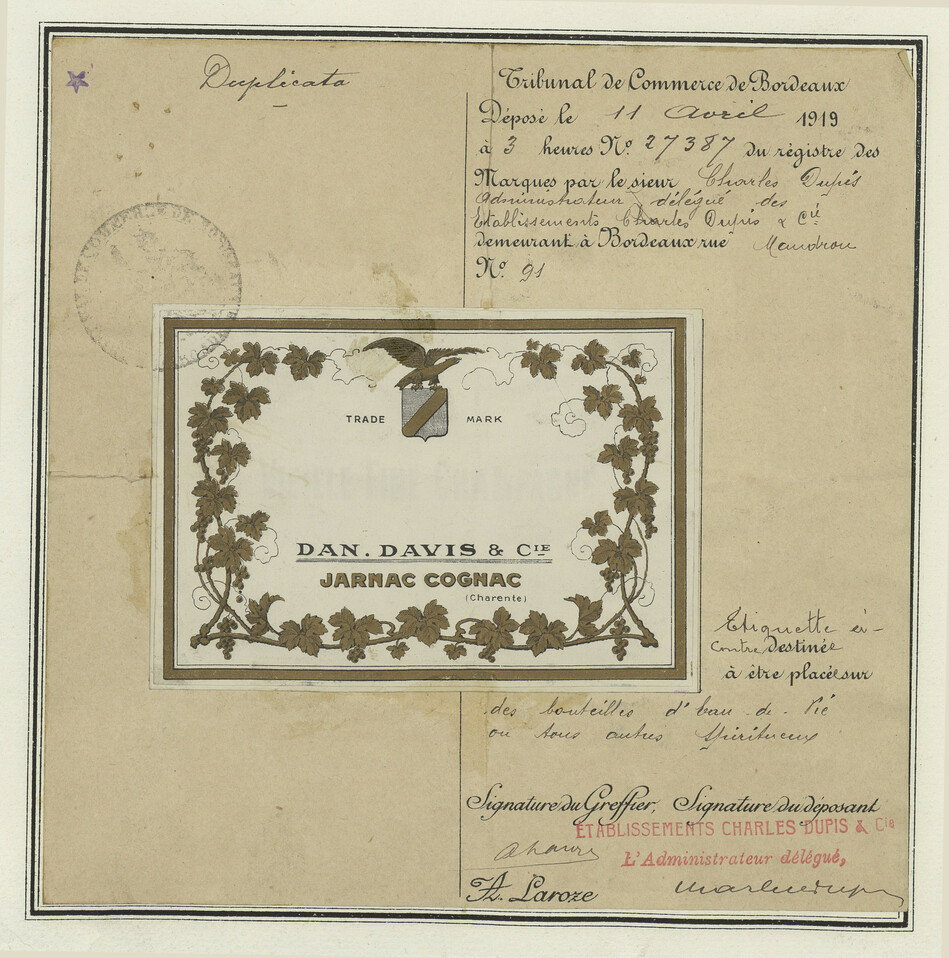 Duplicata
Tribunal de Commerce de Bordeaux
Déposé le 11 avril 1919
à 3 heures Nº 27387 du régistre des
Marques par le sieur Charles Dupis
Administrateur délégué des
Etablissements Charles Dupis & Cie
demeurant à Bordeaux rue Mandron
Nº 91
TRADE MARK
DAN. DAVIS & CIE
JARNAC COGNAC
(Charente)
Etiquette ci-
contre Destinée
à être placée sur
des bouteilles d'eau-de-Vie
ou tous autres Spiritueux
Signature du Greffier, Signature du déposant
ETABLISSEMENTS CHARLES DUPIS & Cie
L'Administrateur délégué,
A. Laroze